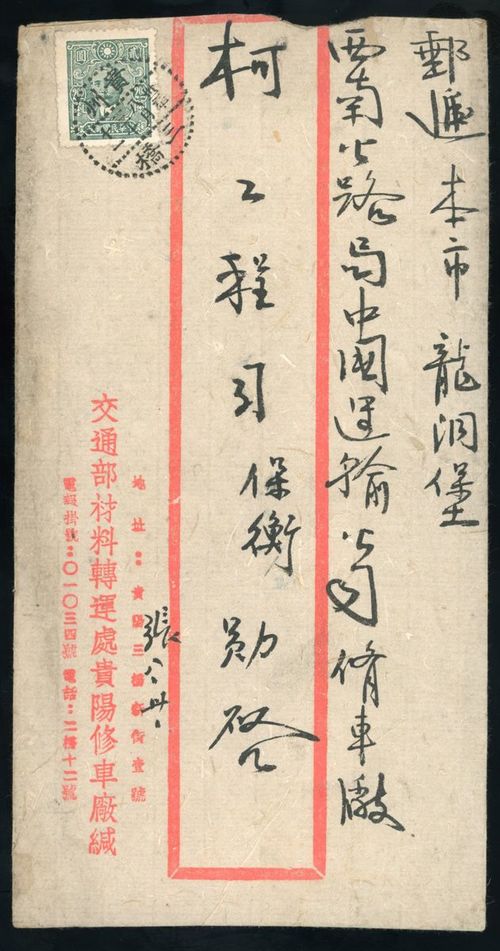 郵遞本市龍洞堡
西南公路局中國運輸公司修車廠
柯工程司保衡勛啓
地址：貴陽三橋新街壹號
張公世
交通部材料轉運處貴陽修車廠緘
電報掛號：〇一〇三四號 電話：二橋十二號
貴州
三橋